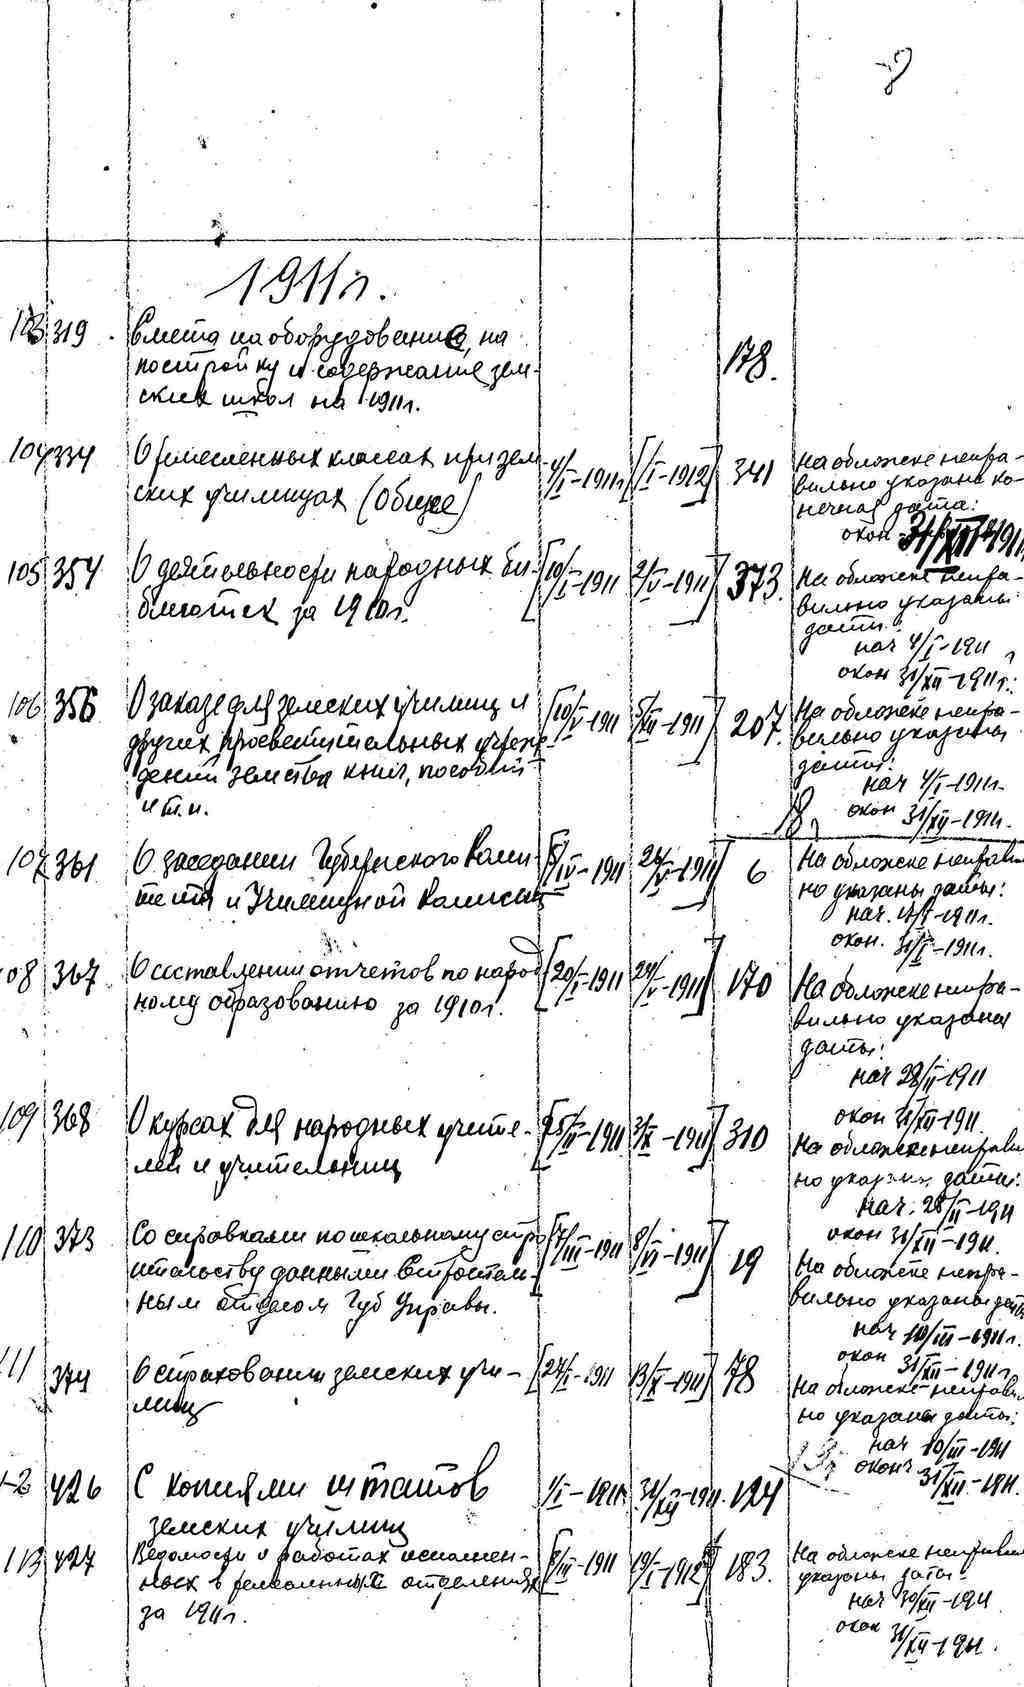 1911 г.
103 319 Смета на оборудование, на
постройку и содержание зем-
ских школ на 1911 г.
178.
104 334 О ремесленных классах при зем-
ских училищах (Общее)
4/I-1911г [1/I-1912] 341
На обложке непра-
вильно указана ко-
нечная дата:
окон 31/XII-1911
105 354 О деятельности народных би-
блиотек за 1910 г.
[10/I-1911 2/V-1911] 373.
На обложке непра-
вильно указаны
даты
нач 4/I-1911
окон 31/XII-1911г.
106 356 О заказе для земских училищ и
других просветительных учреж-
дений земства книг, пособий
и т.п.
[10/V-1911 5/XII-1911] 207.
На обложке непра-
вильно указаны
даты:
нач 4/I-1911г.
окон 31/XII-1911г.
107 361 О заседании Губернского Коми-
тета и Училищной Комиссии
-1911 -1911] 6
На обложке неправиль
но указаны даты:
нач. -1911г.
окон. -1911г.
108 367 О составлении отчетов по народ
ному образованию за 1910 г.
[20/I-1911 24/V-1911] 170
На обложке непра-
вильно указаны
даты:
нач 28/II-1911
окон 31/XII-1911.
109 368 О курсах для народных учите-
лей и учительниц
-1911 -1911] 310
На обложке неправиль
но указаны даты:
нач. 28/II-1911
окон 31/XII-1911.
110 373 Со справками по школьному стро
ительству данными Строитель-
ным отделом Губ Управы.
[7/III-1911 8/VI-1911] 19
На обложке непра-
вильно указаны даты
нач 10/III-1911г.
окон 31/XII-1911г.
111 374 О страховании земских учи-
лищ
[27/I-1911 13/X-1911] 78
На обложке неправиль
но указаны даты:
нач 10/III-1911
оконч 31/XII-1911.
426 С копиями штатов
земских училищ
1/I-1911. 31/XII-1911. 124
113 427 Ведомости о работах исполнен-
ных в ремесленных отделениях
за 1911 г.
[8/III-1911 19/I-1912] 183.
На обложке неправиль
указаны даты
нач 30/XII-1911
окон 31/XII-1911.